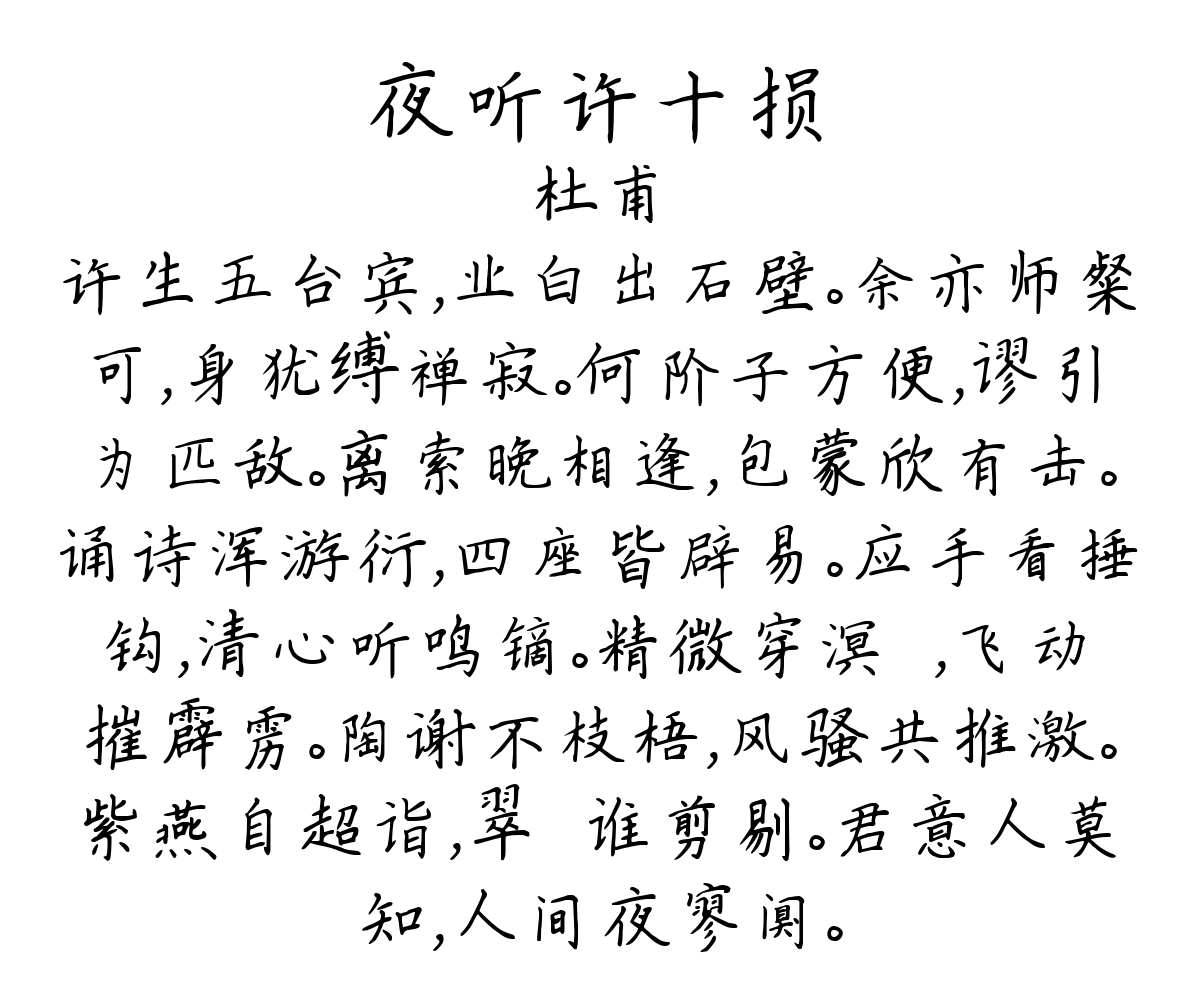 夜听许十损
杜甫
许生五台宾,业白出石壁。余亦师粲
可,身犹缚禅寂。何阶子方便,谬引
为匹敌。离索晚相逢,包蒙欣有击。
诵诗浑游衍,四座皆辟易。应手看捶
钩,清心听鸣镝。精微穿溟 ,飞动
摧霹雳。陶谢不枝梧,风骚共推激。
紫燕自超诣,翠 谁剪剔。君意人莫
知,人间夜寥阒。